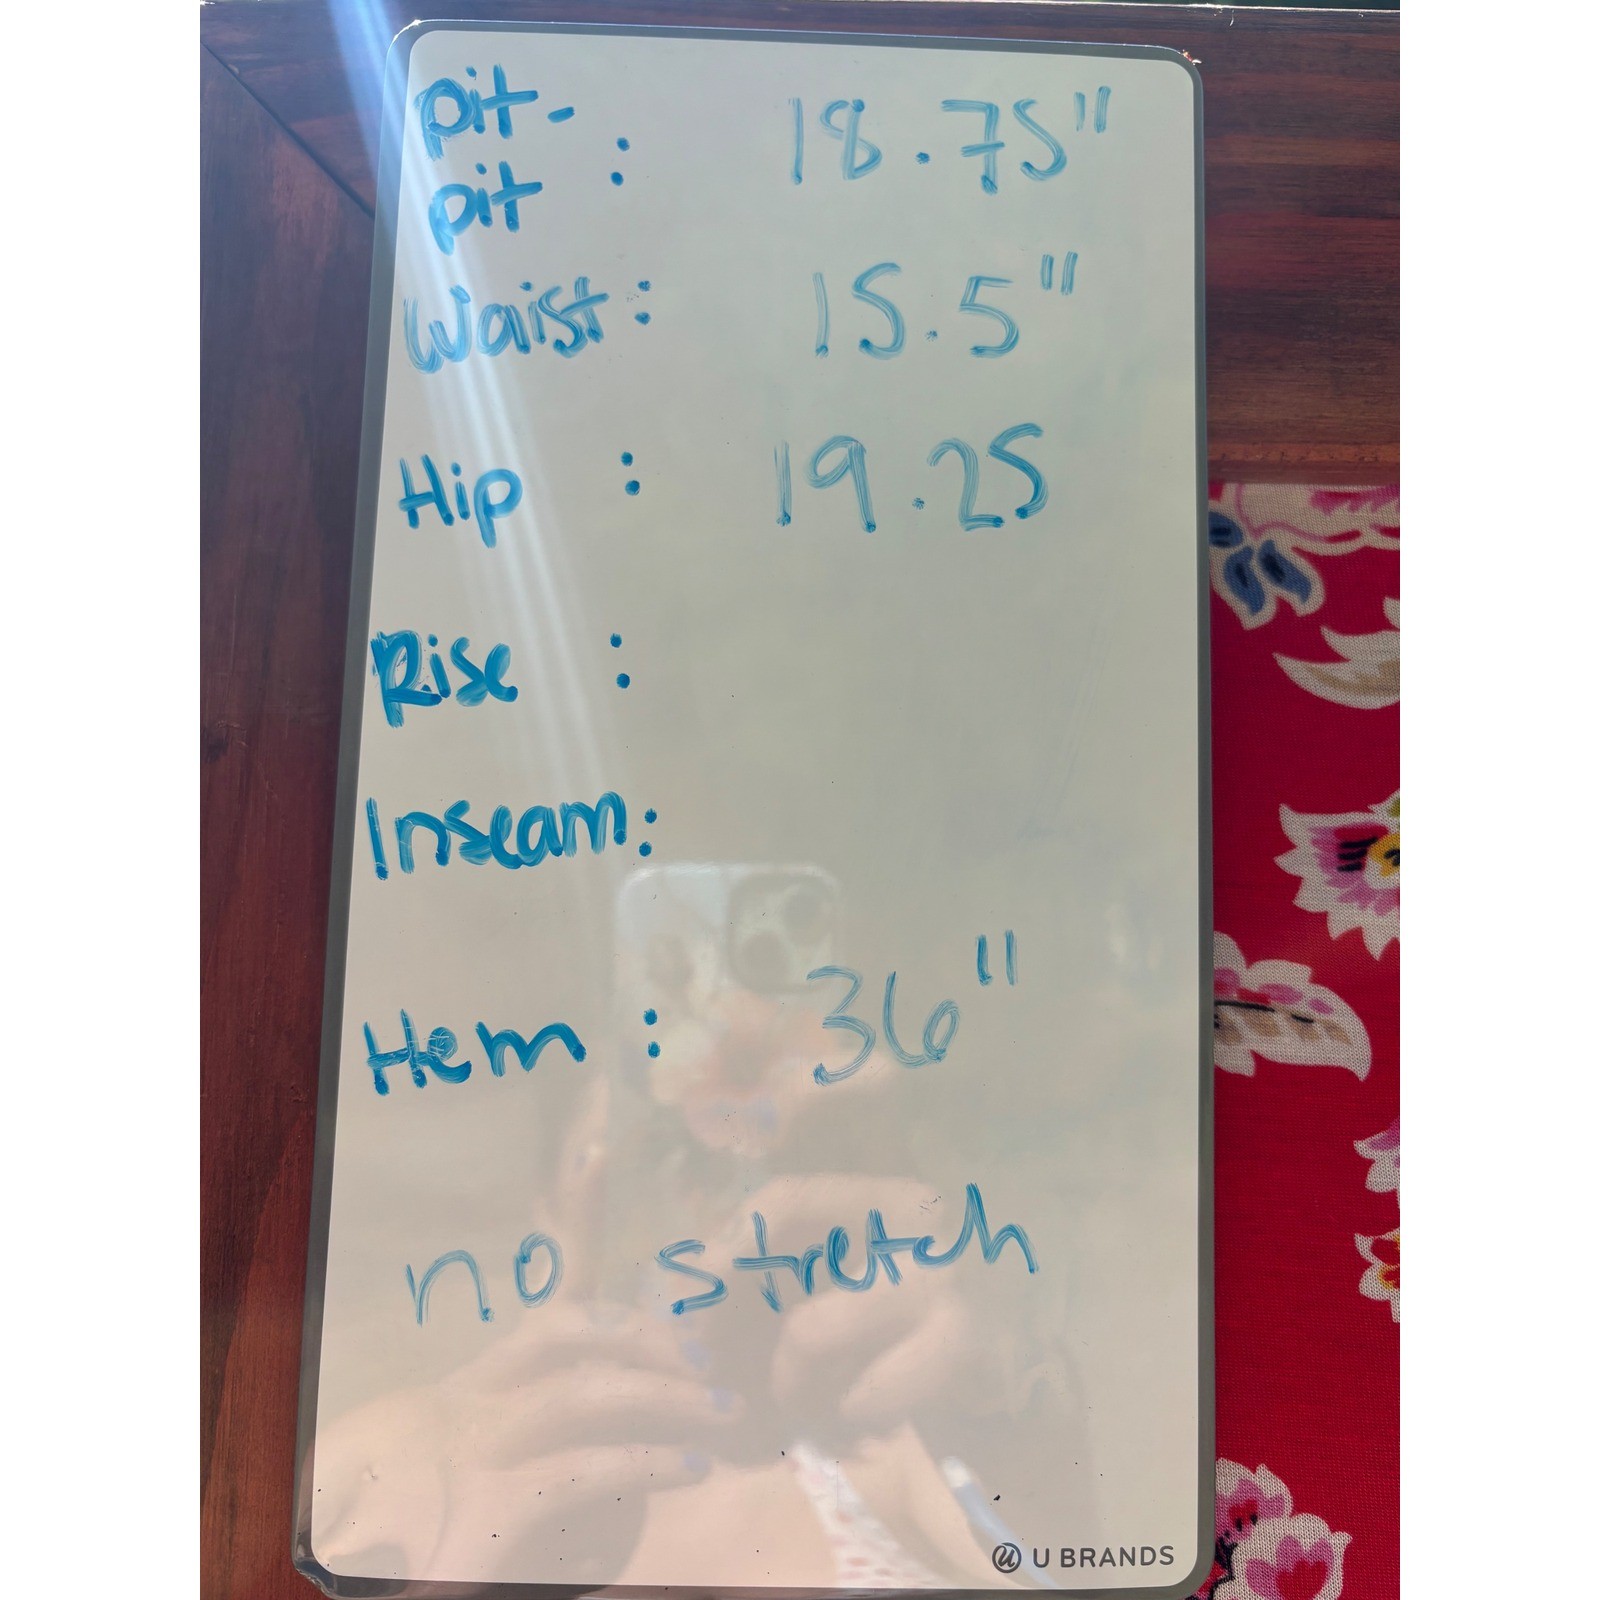 pit-
pit : 18.75"
Waist: 15.5"
Hip : 19.25
Rise :
Inseam:
Hem : 36"
no stretch
U BRANDS